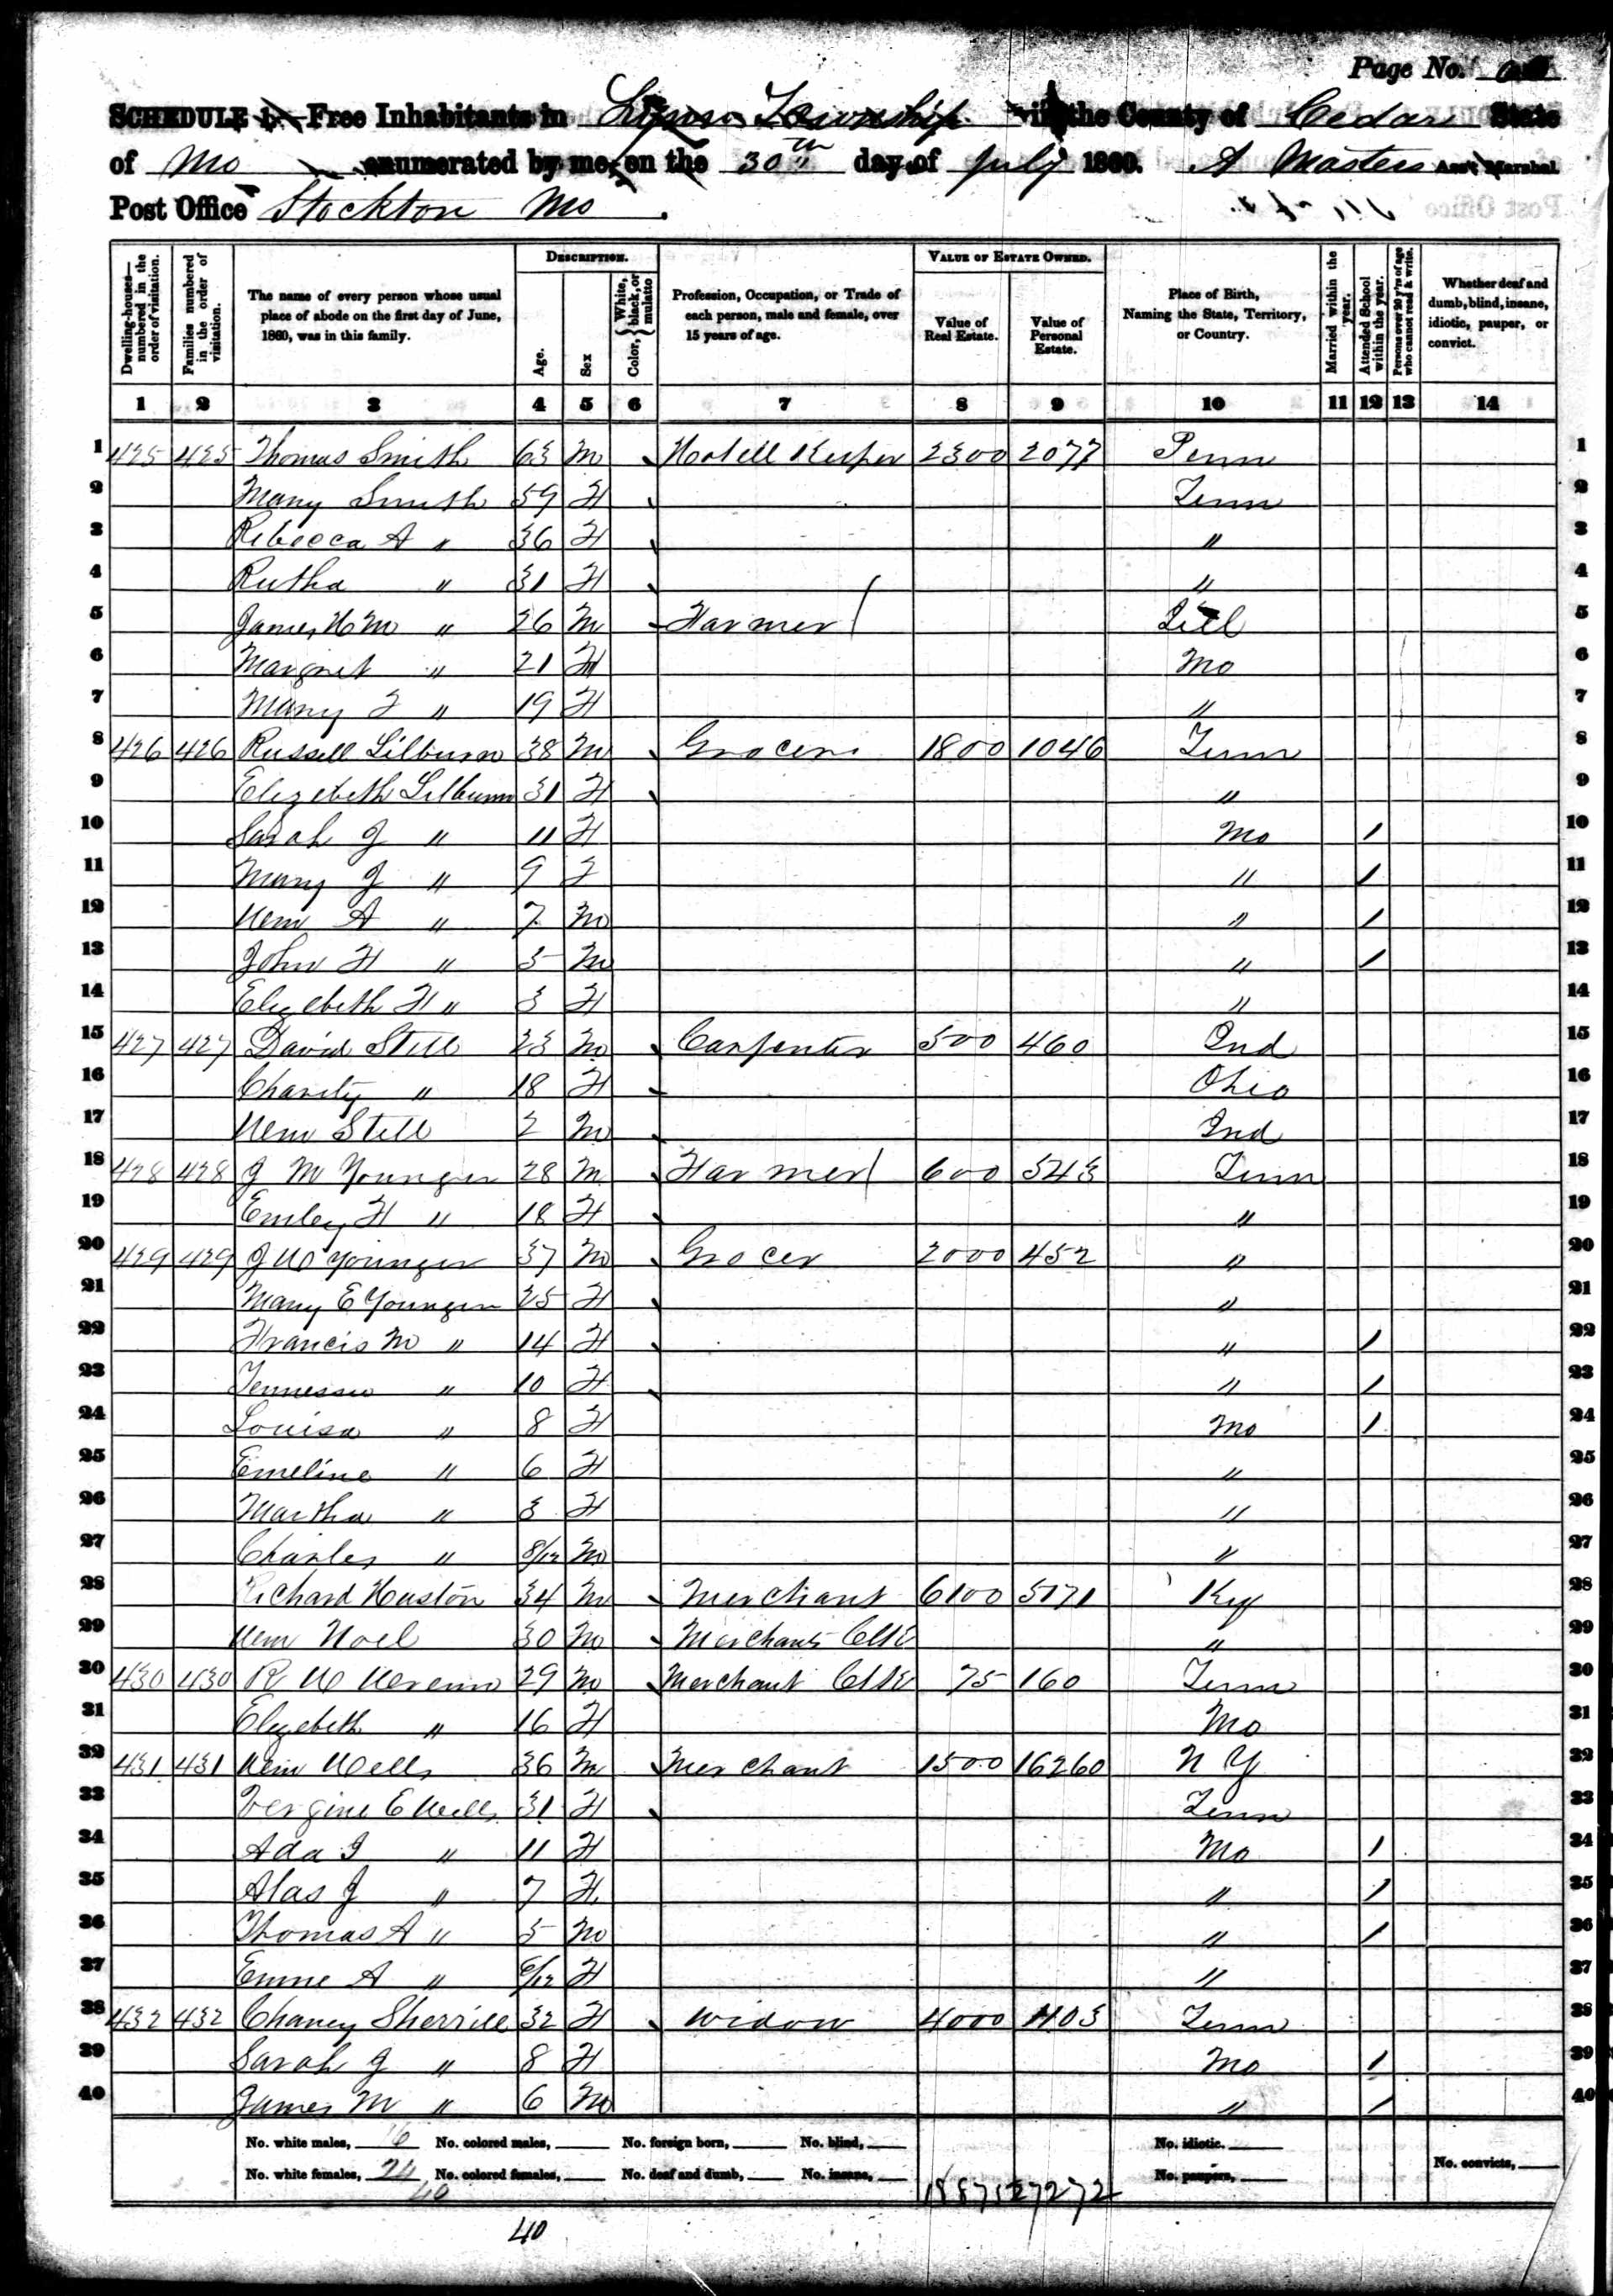 Page No.
SCHEDULE 1.—Free Inhabitants in Township in the County of Cedar State
of Mo enumerated by me, on the 30th day of July 1860. A Masters Ass't Marshal.
Post Office Stockton Mo.
Dwelling-houses—numbered in the order of visitation. Families numbered in the order of visitation. The name of every person whose usual place of abode on the first day of June, 1860, was in this family. DESCRIPTION. Age. Sex Color, White, black, or mulatto Profession, Occupation, or Trade of each person, male and female, over 15 years of age. VALUE OF ESTATE OWNED. Value of Real Estate. Value of Personal Estate. Place of Birth, Naming the State, Territory, or Country. Married within the year. Attended School within the year. Persons over 20 y'rs of age who cannot read & write. Whether deaf and dumb, blind, insane, idiotic, pauper, or convict.
1 2 3 4 5 6 7 8 9 10 11 12 13 14
1 425 425 Thomas Smith 63 M Hotell Keeper 2300 2077 Penn 1
2 Mary Smith 59 F Tenn 2
3 Rebecca A " 36 F " 3
4 Rutha " 31 F " 4
5 James " 26 M Farmer 5
6 Margret " 21 F Mo 6
7 Mary F " 19 F " 7
8 426 426 Russell Lilburn 38 M Grocer 1800 1046 Tenn 8
9 Elizebeth Lilburn 31 F " 9
10 Sarah J " 11 F Mo / 10
11 Mary J " 9 F " / 11
12 Wm A " 7 M " / 12
13 John F " 5 M " / 13
14 Elizebeth F " 3 F " 14
15 427 427 David Still 23 M Carpenter 500 460 Ind 15
16 Charity " 18 F Ohio 16
17 Wm Still 2 M Ind 17
18 428 428 J M Younger 28 M Farmer 600 543 Tenn 18
19 Emley F " 18 F " 19
20 429 429 J W Younger 37 M Grocer 2000 452 " 20
21 Mary E Younger 35 F " 21
22 Francis M " 14 F " / 22
23 Tennessee " 10 F " / 23
24 Louisa " 8 F Mo / 24
25 Emeline " 6 F " 25
26 Martha " 3 F " 26
27 Charles " 8/12 M " 27
28 Richard Huston 34 M Merchant 6100 5171 Ky 28
29 Wm Noel 30 M Merchants Clk " 29
30 430 430 R W 29 M Merchant Clk 75 160 Tenn 30
31 Elizebeth " 16 F Mo 31
32 431 431 Wm Wells 36 M Merchant 1500 16260 N Y 32
33 Vergine E Wells 31 F Tenn 33
34 Ada J " 11 F Mo / 34
35 Alas J " 7 F " / 35
36 Thomas A " 5 M " / 36
37 Emme A " 6/12 F " 37
38 432 432 Chaney Sherrill 32 F Widow 4000 1103 Tenn 38
39 Sarah J " 8 F Mo / 39
40 James M " 6 M " / 40
No. white males, 16 No. colored males, No. foreign born, No. blind, No. idiotic.
No. white females, 24 No. colored females, No. deaf and dumb, No. insane, No. paupers, No. convicts,
40 18875 27272
40